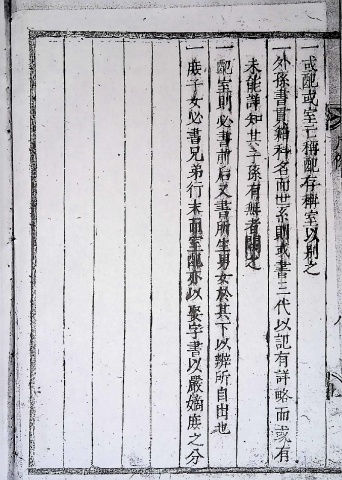 一或配或室亡稱配存稱室以別之
一外孫書貫籍科名而世系則或書三代以記有詳略而或有
未能詳知其子孫有無者闕之
一配室則必書前后又書所生男女於其下以辨所自出也
一庶子女必書兄弟行末而室配亦以娶字書以嚴嫡庶之分